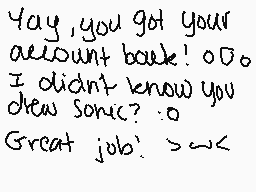 Yay, you got your
account back! oOo
I didn't know you
drew Sonic? :o
Great job! >w<